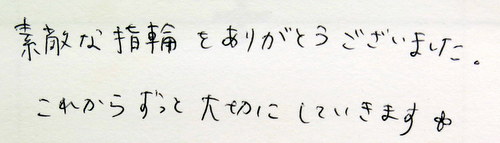 素敵な指輪をありがとうございました。
これからずっと大切にしていきます